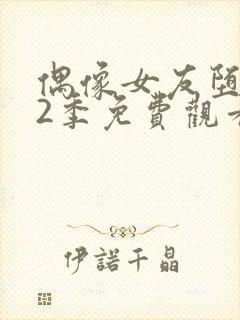 偶像女友堕
2季免費觀
伊諾千晶